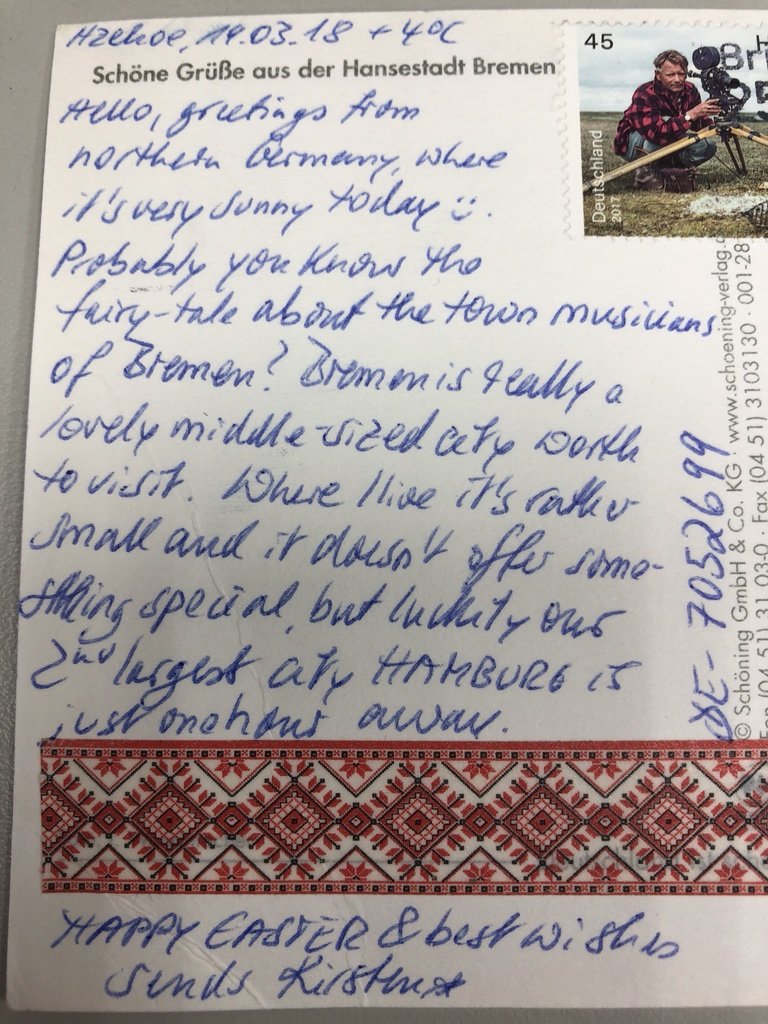 Itzehoe, 19.03.18 +4°C
Schöne Grüße aus der Hansestadt Bremen
Hello, greetings from
northern Germany, where
it's very sunny today ü.
Probably you know the
fairy-tale about the town musicians
of Bremen? Bremen is really a
lovely middle-sized city worth
to visit. Where I live it's rather
small and it doesn't offer some-
thing special, but luckily our
2nd largest city HAMBURG is
just one hour away.
HAPPY EASTER & best wishes
sends Kirsten
45
Deutschland
2017
DE-7052699
© Schöning GmbH & Co. KG · www.schoening-verlag.
Fon (04 51) 31 03-0 · Fax (04 51) 3103130 · 001-28